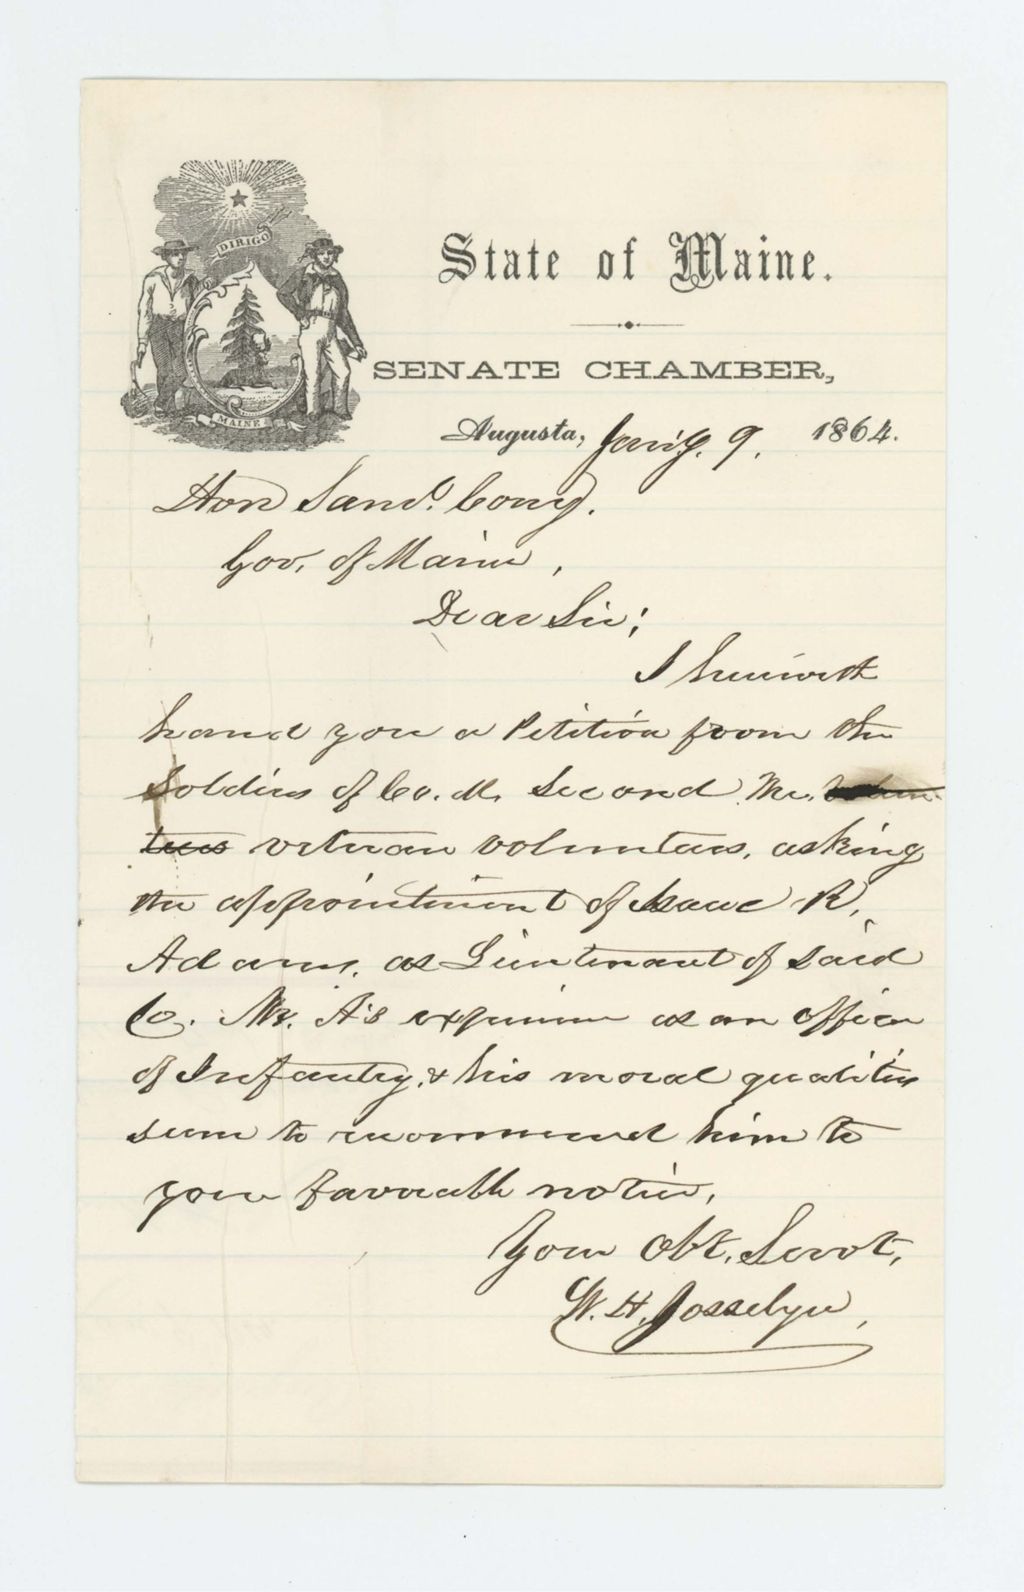 DIRIGO
MAINE
State of Maine.
SENATE CHAMBER,
Augusta, Jan'y. 9. 1864.
Hon Saml. Cony.
Gov. of Maine,
Dear Sir;
I herewith
hand you a Petition from the
Soldiers of Co. M. Second Me. Volun-
teers veteran volunteers, asking
the appointment of Isaac R.
Adams, as Lieutenant of said
Co. Mr. A's experience as an officer
of Infantry, & his moral qualities
seem to recommend him to
your favorable notice,
Your Obt. Servt,
W. H. Josselyn,